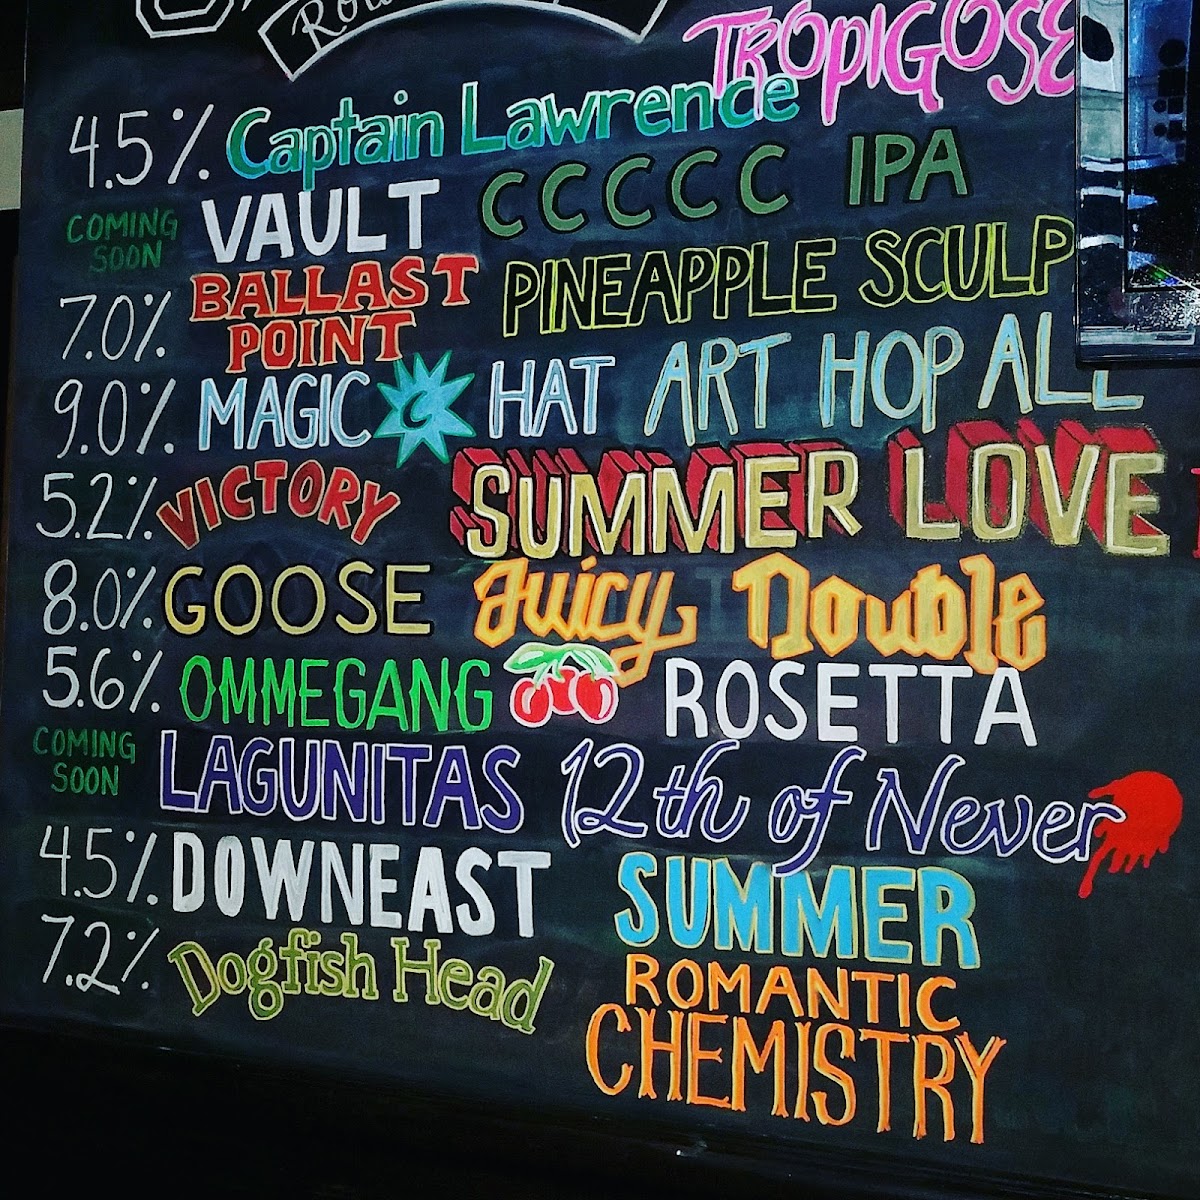 TROPIGOSE
4.5% Captain Lawrence
COMING SOON VAULT CCCCC IPA
7.0% BALLAST POINT PINEAPPLE SCULP
9.0% MAGIC HAT ART HOP ALL
5.2% VICTORY SUMMER LOVE
8.0% GOOSE Juicy Double
5.6% OMMEGANG ROSETTA
COMING SOON LAGUNITAS 12th of Never
4.5% DOWNEAST SUMMER
7.2% Dogfish Head ROMANTIC CHEMISTRY